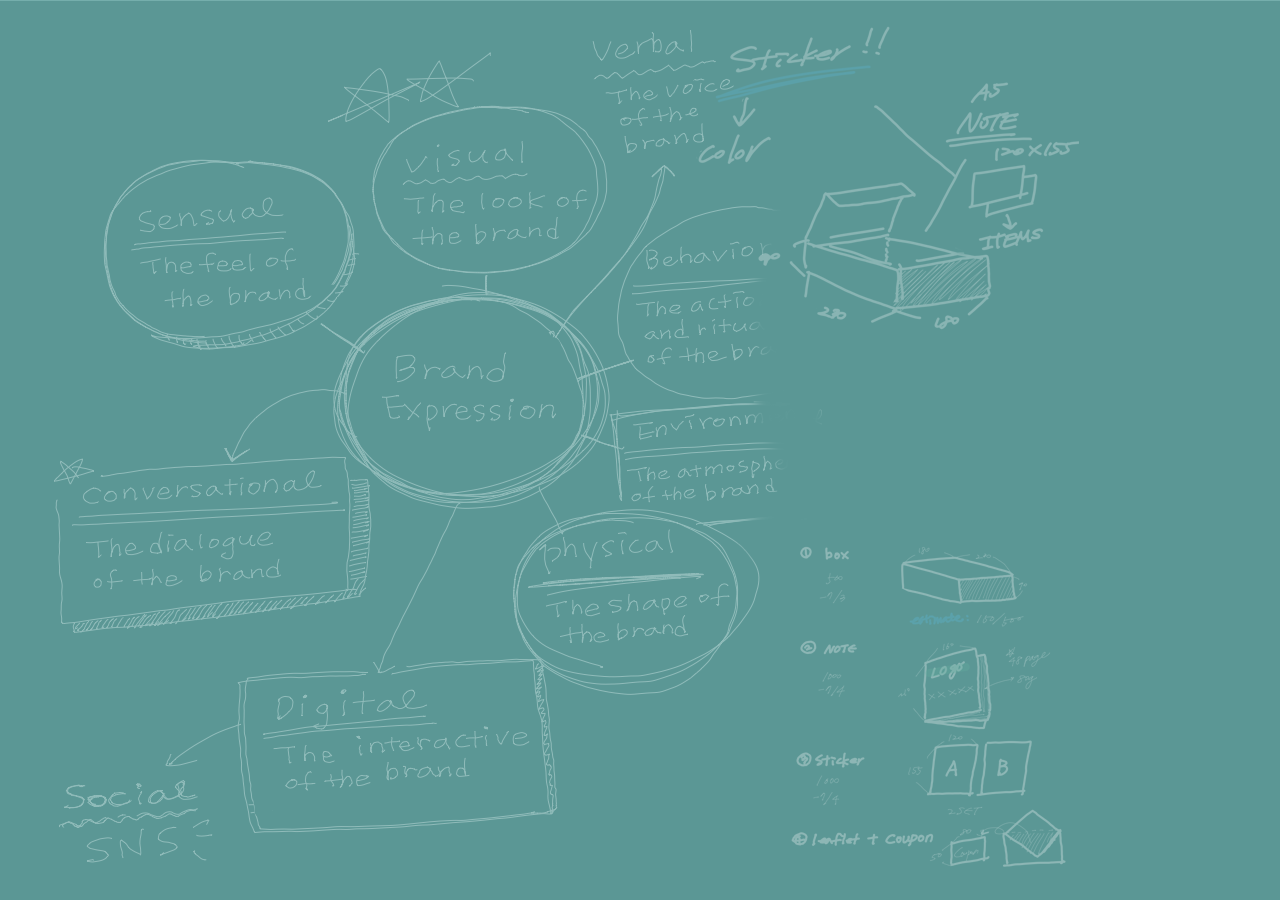 verbal
The voice
of the
brand
Sticker !!
color
A5
NOTE
120×155
ITEMS
230
180
visual
The look of
the brand
Sensual
The feel of
the brand
Behavior
The actio
and ritu
of the br
Brand
Expression
Environm
The atmosphe
of the brand
conversational
The dialogue
of the brand
physical
The shape of
the brand
Digital
The interactive
of the brand
Social
SNS
① box
② NOTE
LOGO
③ Sticker
A B
2SET
④ leaflet + Coupon